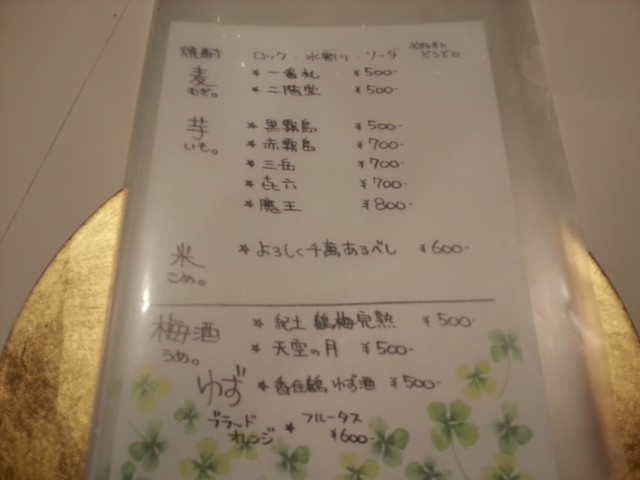 焼酎 ロック 水割り ソーダ お好きな どうぞ
麦 むぎ。 * 一番札 ¥500-
* 二階堂 ¥500-
芋 いも。 * 黒霧島 ¥500-
* 赤霧島 ¥700-
* 三岳 ¥700-
* 㐂六 ¥700-
* 魔王 ¥800-
米 こめ。 * よろしく千萬あるべし ¥600-
梅酒 うめ。 * 紀土 鶴梅完熟 ¥500-
* 天空の月 ¥500-
ゆず * 香住鶴 ゆず酒 ¥500-
ブラッド オレンジ * フルータス ¥600-